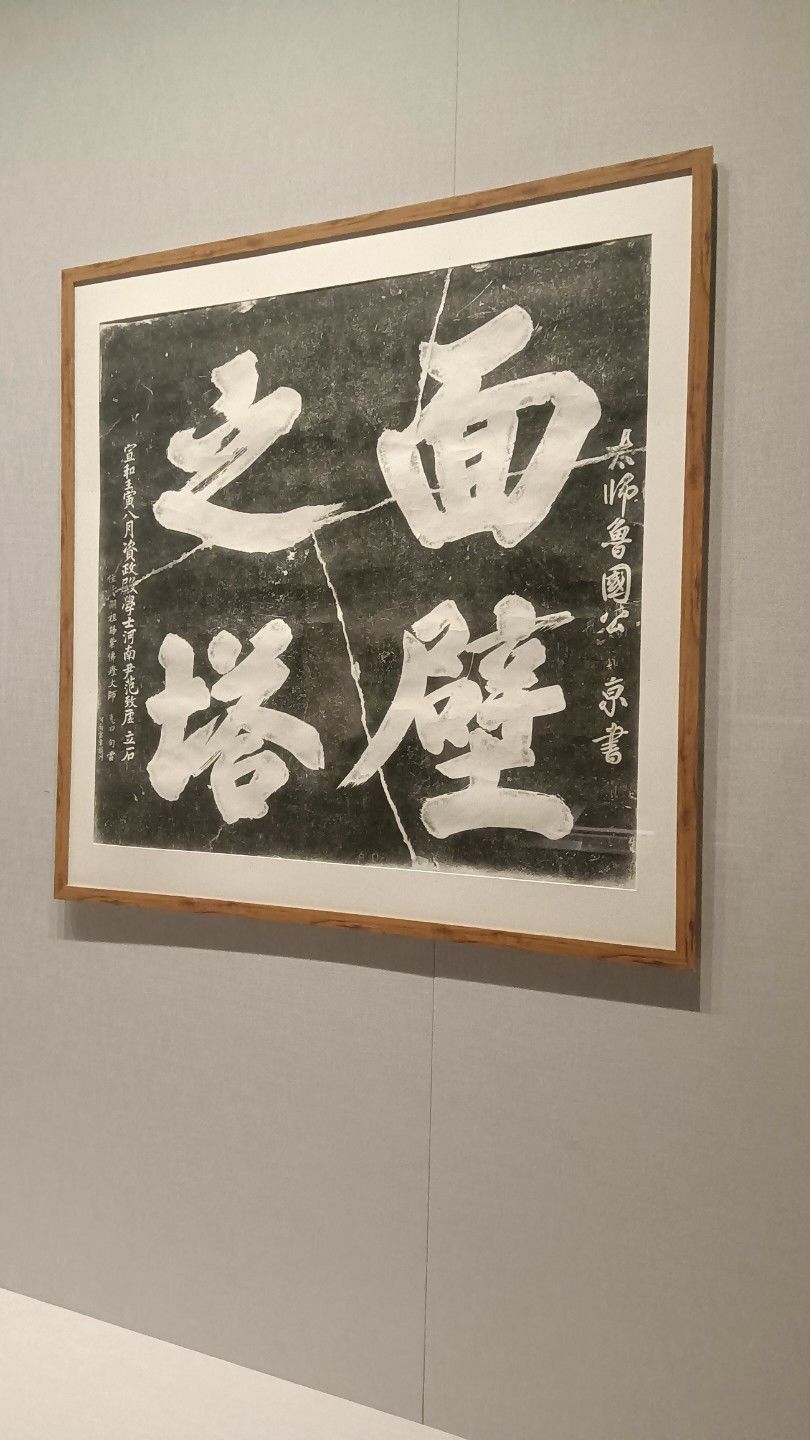 太師魯國公京書
面壁
之塔
宣和壬寅八月資政殿學士河南尹范致虛立石
住少
祖
佛燈大師